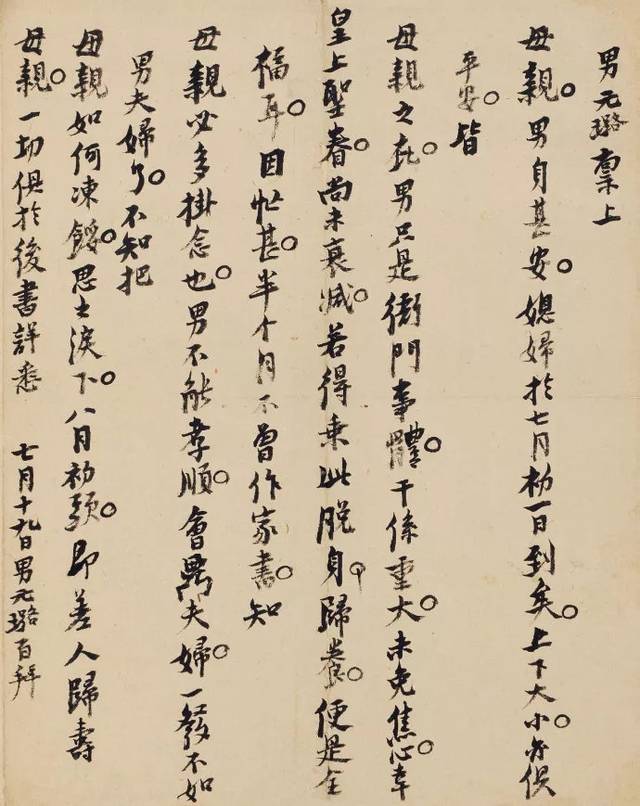 男元璐稟上
母親。男自甚安。媳婦於七月初一日到矣。上下大小。亦俱
平安。皆
母親之庇。男只是衙門事體。干係重大。未免焦心。幸
皇上聖眷。尚未衰減。若得乘此脫身。歸養。便是全
福耳。因忙甚。半个月不曾作家書。知
母親必多掛念也。男不能孝順。會禺夫婦。一發不如
男夫婦了。不知把
母親如何凍餒。思之淚下。八月初頭。即差人歸壽
母親。一切俱於後書詳悉 七月十九日男元璐百拜